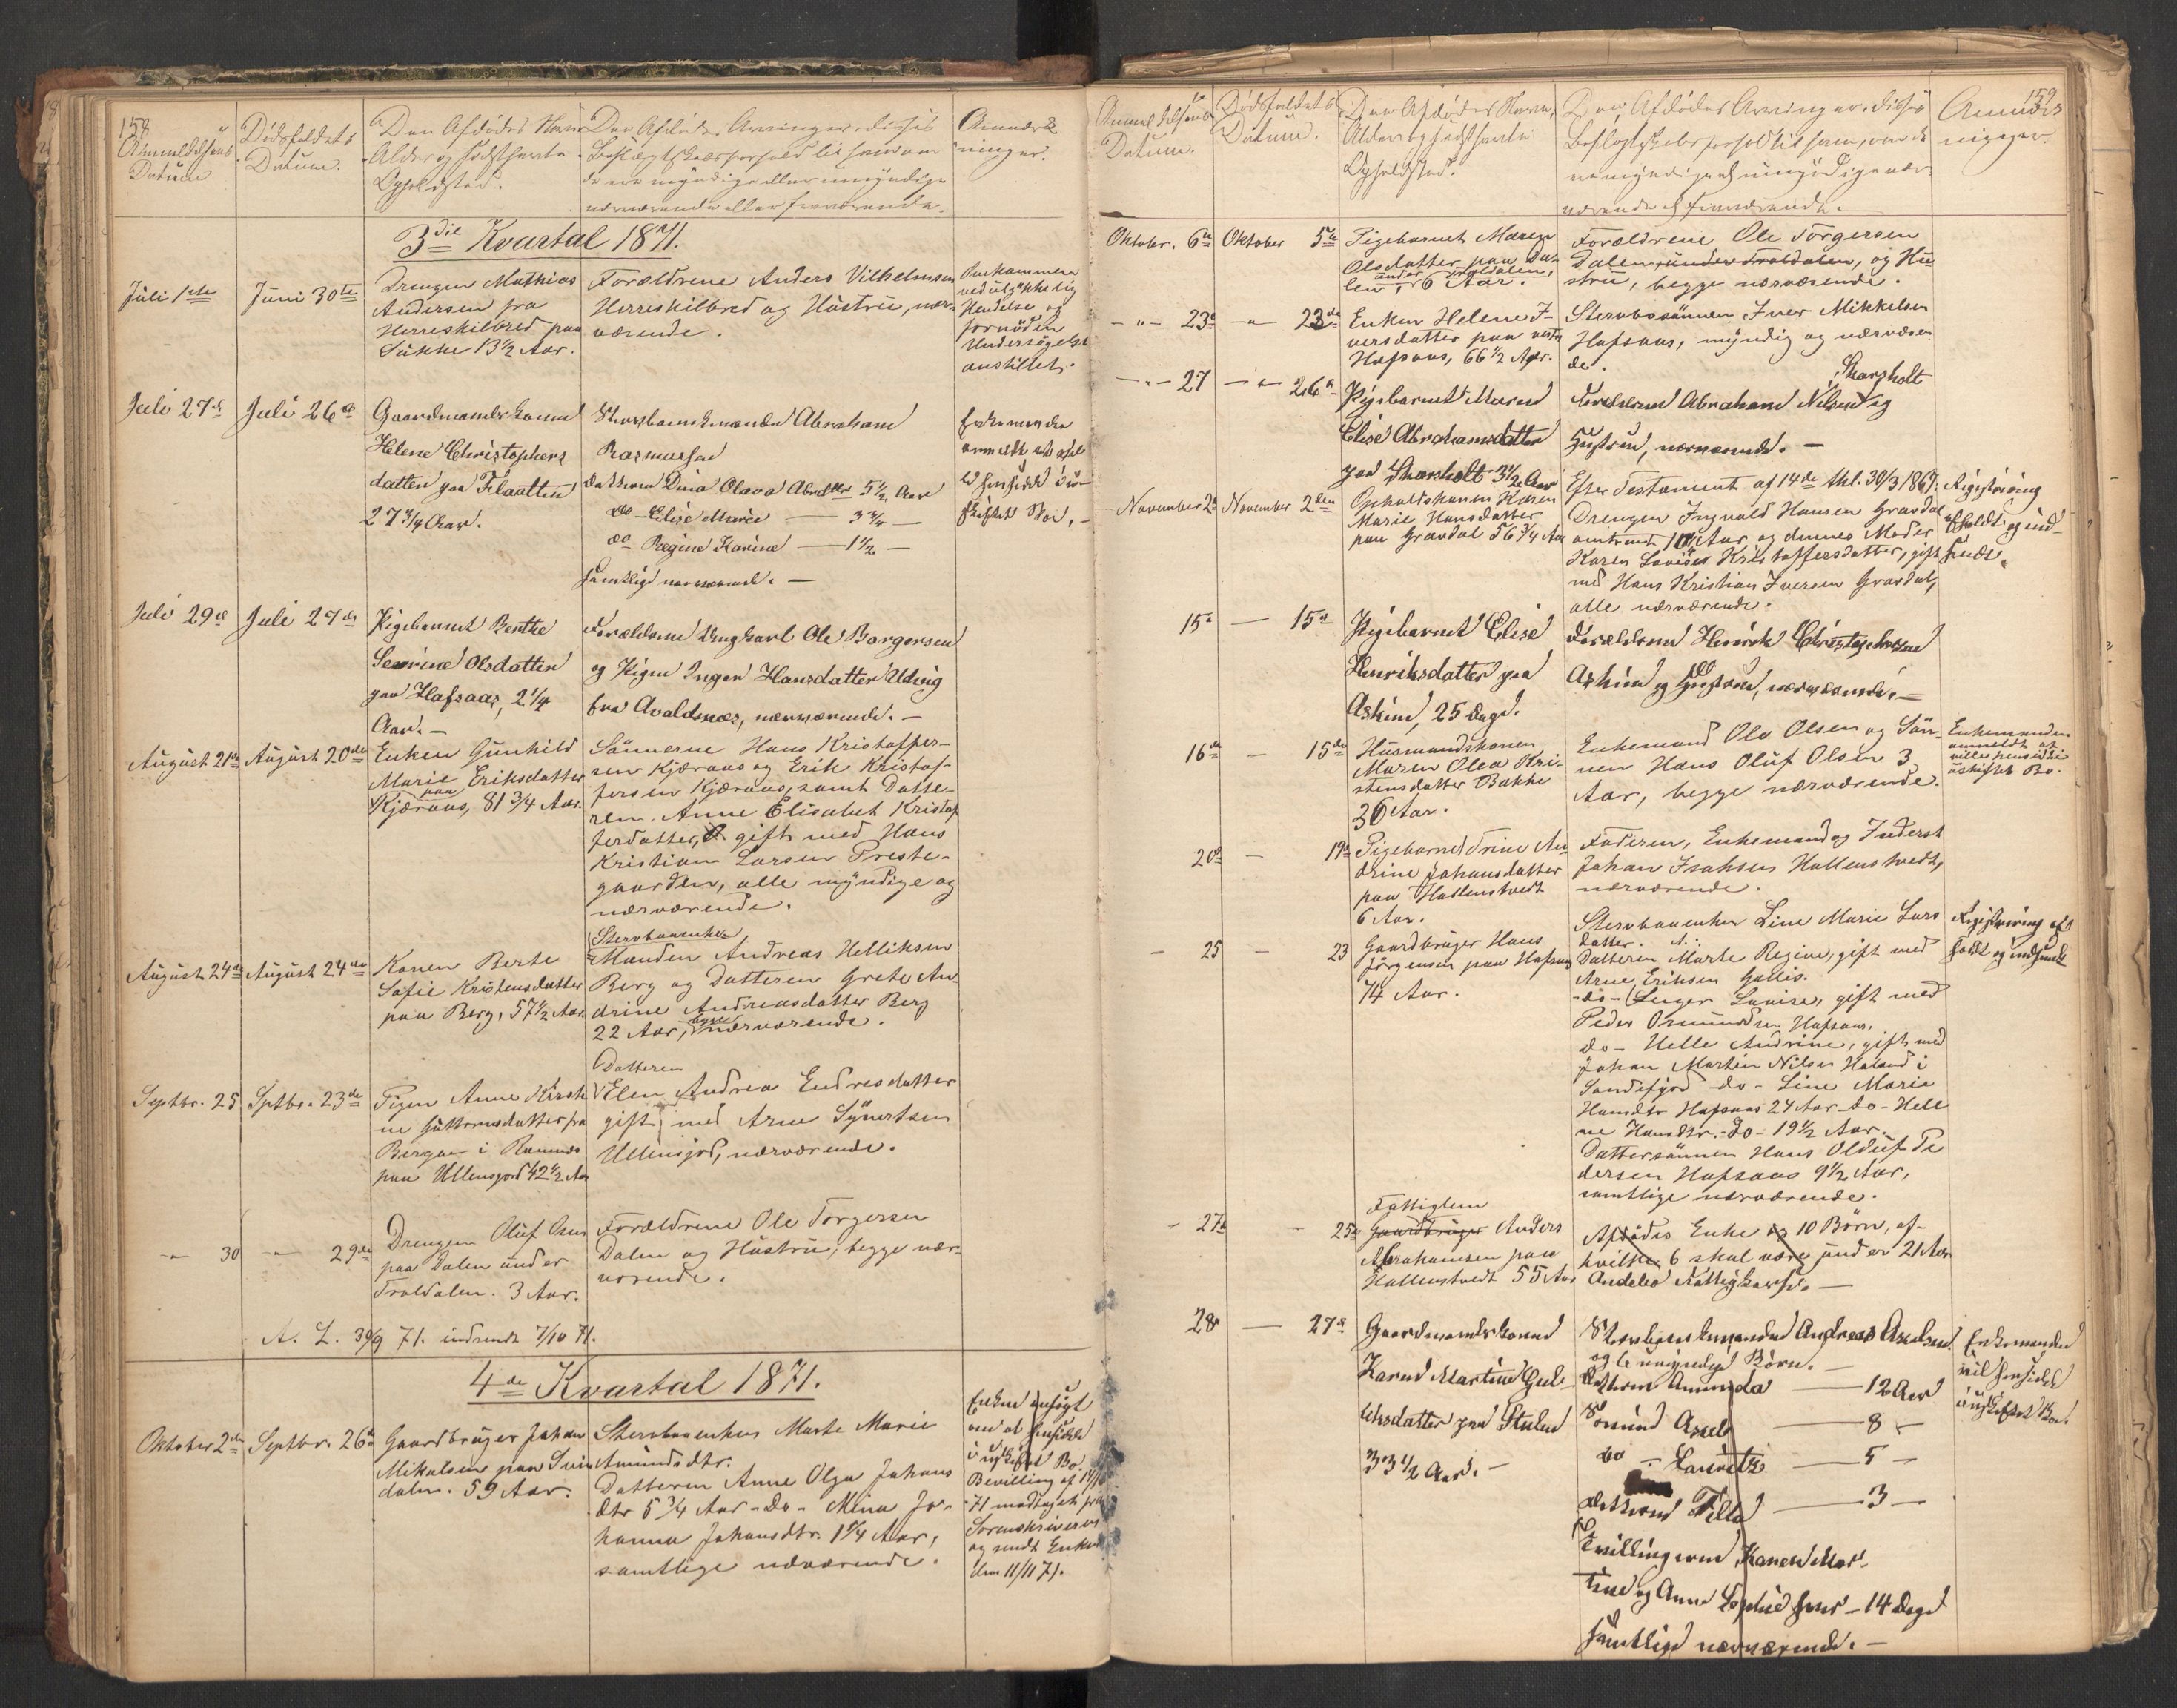 158
Anmeldelsens
Datum
Dødsfaldets
Datum.
Den Afdødes Navn
Alder og sidst havte
Opholdsted.
Den Afdødes Arvinger, disses
Beslægtskabsforhold til ham om
de ere myndige eller umyndige
nærværende eller fraværende.
Anmærk
ninger.
3die Kvartal 1871.
Juli 1ste
Juni 30te
Drengen Mathias
Andersen fra
Herreskilbred paa
Sukke 13½ Aar.
Forældrene Anders Vilhelmsen
Herreskilbred og Hustru, nær-
værende.
Omkommen
ved ulykkelig
Hendelse og
fornøden
Undersøgelse
anstillet.
Juli 27de
Juli 26de
Gaardmandskone
Helene Christophers
datter paa Flaatten
27 3/4 Aar.
Stervboenkemanden Abraham
Rasmussen
datteren Dina Olava Abrdtter 5½ Aar
do Elise Marie — 3 3/4 —
do Regine Karine — 1½ —
samtlige nærværende. —
Enkemanden
anmeldt, at ville
hensidde i u-
skiftet Bo. —
Juli 29de
Juli 27de
Pigebarnet Berthe
Severine Olsdatter
paa Hafsaas, 2 1/4
Aar. —
Forældrene Ungkarl Ole Borgersen
og Pigen Inger Hansdatter Uding
fra Avaldsnæs, nærværende. —
August 21de
August 20de
Enken Gunhild
Marie Eriksdatter
paa
Kjæraas, 81 3/4 Aar.
Sønnerne Hans Kristoffer-
sen Kjæraas og Erik Kristof-
fersen Kjæraas, samt Datte-
ren Anne Elisabet Kristof
fersdatter, gift med Hans
Kristian Larsen Preste-
gaarden, alle myndige og
nærværende.
August 24de
August 24de
Konen Berte
Sofie Kristensdatter
paa Berg, 57½ Aar.
Stervboenke-
Manden Andreas Helliksen
Berg og Datteren Grete An-
drine Andreasdatter Berg
22 Aar, begge nærværende.
Septbr. 25
Sptbr. 23de
Pigen Anne Kirsti
ne Guttormsdatter fra
Bergan i Ramnæs
paa Ullensjord 42½ Aar
Datteren
Elen Andrea Endresdatter
gift med Arne Syvertsen
Ullensjord, nærværende.
-"- 30
-"- 29de
Drengen Oluf Olsen
paa Dalen under
Troldalen. 3 Aar.
Forældrene Ole Torgersen
Dalen og Hustru, begge nær-
værende.
A. L. 30/9 71. indsendt 7/10 71.
4de Kvartal 1871.
Oktober 2de
Septbr. 26de
Gaardbruger Johan
Mikalsen paa Svin
dalen. 59 Aar.
Stervboenken Marte Marie
Amundsdtr.
Datteren Anne Olga Johans
dtr 5 3/4 Aar - Do - Mina Jo-
hanna Johansdtr. 1 1/4 Aar,
samtlige nærværende.
Enken ansøgt
om at hensidde
i uskiftet Bo.
Bevilling af
71 modtaget fra
Sorenskriveren
og sendt Enken
den 11/11 71.
159
Anmeldelsens
Datum.
Dødsfaldets
Datum.
Den Afdødes Navn,
Alder og sidst havte
Opholdsted.
Den Afdødes Arvinger, disses
Beslægtskabsforhold til ham, om de
ere myndige el umyndige nær-
værende el fraværende.
Anmærk
ninger.
Oktobr. 6te
Oktober 5te
Pigebarnet Maren
Olsdatter paa Da-
len, under Troldalen, 6 Aar.
Forældrene Ole Torgersen
Dalen, under Troldalen, og Hu
stru, begge nærværende.
-"- 23de
-"- 23de
Enken Helene I-
versdatter paa vestre
Hafsaas, 66½ Aar.
Stervbosønnen Iver Mikkelsen
Hafsaas, myndig og nærværen
de.
-"- 27
-"- 26de
Pigebarnet Maren
Elise Abrahamsdatter
paa Skarsholt 3½ Aar
Skarsholt
Forældrene Abraham Nilsen og
Hustrue, nærværende. —
November 2de
November 2den
Opholdskonen Helene
Marie Hansdatter
paa Gravdal 56 3/4 Aar
Efter Testament af 14de thl. 30/3 1867:
Drengen Ingvald Hansen Gravdal
omtrent 10 Aar og dennes Moder
Karen Lovise Kristoffersdatter, gift
med Hans Kristian Iversen Gravdal,
alle nærværende.
Registrering
afholdt og ind-
sendt.
15de
— 15de
Pigebarnet Elise
Henriksdatter paa
Askim, 25 Dage.
Forældrene Henrik Christophersen
Askim og Hustrue, nærværende. —
16de
— 15de
Husmandskonen
Maren Olea Kri-
stensdatter Bakke
36 Aar.
Enkemand Ole Olsen og Søn-
nen Hans Oluf Olsen 3
Aar, begge nærværende.
Enkemanden
anmeldt at
ville hensidde i
uskiftet Bo.
20de
— 19de
Pigebarnet Trine An
drine Johansdatter
paa Hallenstvedt
6 Aar.
Faderen, Enkemand og Inderst
Johan Isaksen Hallenstvedt,
nærværende.
- 25
- 23
Gaardbruger Hans
Jørgensen paa Hafsaas
74 Aar.
Stervboenken Line Marie Lars
datter.
Datteren Marte Regine, gift med
Arne Eriksen Gallis.
-do- Inger Lovise, gift med
Peder Osmundsen Hafsaas,
do- Helle Andrine, gift med
Johan Martin Nilsen Haland i
Sandefjord do- Line Marie
Hansdtr Hafsaas 24 Aar do- Hele
ne Hansdtr. - Do - 19½ Aar.
Dattersønnen Hans Olduf Pe
dersen Hafsaas 9½ Aar,
samtlige nærværende.
Registrering af
holdt og indsendt
- 27de
- 25de
Fattiglem
Gaardbruger Anders
Abrahamsen paa
Hallenstvedt 55 Aar
Afdødes Enke og 10 Børn, af-
hvilke 6 skal være under 21 Aar
Anmeldes Fattigkassen. —
28de
— 27de
Gaardmandskonen
Karen Martine Gul-
liksdatter paa Stulen
33½ Aar. —
Stervboenkemanden Andreas Axelsen
og 6 umyndige Børn. —
datteren Amunda — 12 Aar
Sønnen Axel — 8 —
do — Lauritz — 5 —
datteren Tilla — 3 —
Tvillingerne Karen Mar-
tine og Anne Sophie hver — 14 Dage
samtlige nærværende. —
Enkemanden
vil hensidde
i uskiftet Bo.